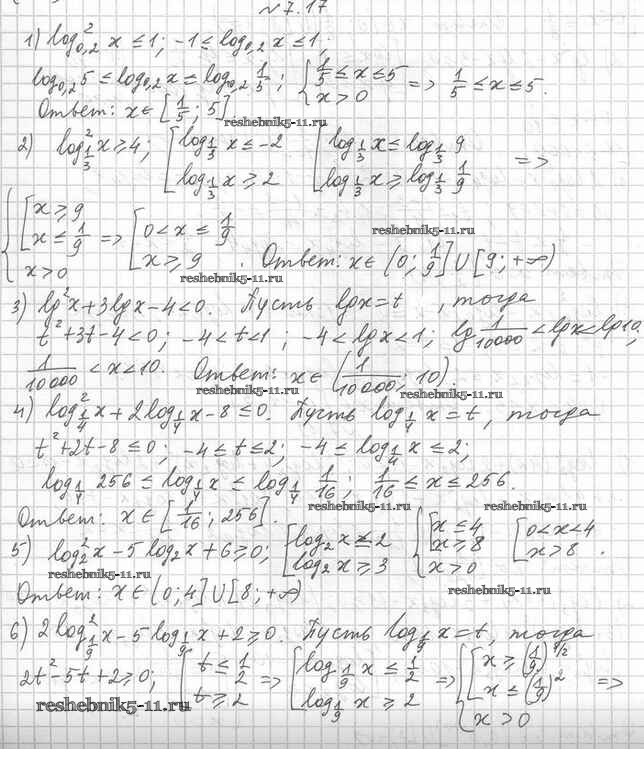 №7.17
1) log²_{0,2} x ≤ 1; -1 ≤ log_{0,2} x ≤ 1;
log_{0,2} 5 ≤ log_{0,2} x ≤ log_{0,2} 1/5; { 1/5 ≤ x ≤ 5 x > 0 => 1/5 ≤ x ≤ 5.
Ответ: x ∈ [1/5; 5]
reshebnik5-11.ru
2) log²_{1/3} x ≥ 4; [ log_{1/3} x ≤ -2 log_{1/3} x ≥ 2 [ log_{1/3} x ≤ log_{1/3} 9 log_{1/3} x ≥ log_{1/3} 1/9 =>
{ [ x ≥ 9 x ≤ 1/9 x > 0 => [ 0 < x ≤ 1/9 x ≥ 9 . Ответ: x ∈ (0; 1/9] ∪ [9; +∞)
reshebnik5-11.ru
reshebnik5-11.ru
3) lg²x + 3lgx - 4 < 0. Пусть lgx = t , тогда
t² + 3t - 4 < 0; -4 < t < 1 ; -4 < lgx < 1; lg 1/10000 < lgx < lg10;
1/10000 < x < 10. Ответ: x ∈ (1/10000; 10).
reshebnik5-11.ru
4) log²_{1/4} x + 2log_{1/4} x - 8 ≤ 0. Пусть log_{1/4} x = t, тогда
t² + 2t - 8 ≤ 0; -4 ≤ t ≤ 2; -4 ≤ log_{1/4} x ≤ 2;
log_{1/4} 256 ≤ log_{1/4} x ≤ log_{1/4} 1/16; 1/16 ≤ x ≤ 256.
reshebnik5-11.ru
reshebnik5-11.ru
Ответ: x ∈ [1/16; 256].
5) log²_2 x - 5 log_2 x + 6 ≥ 0; [ log_2 x ≤ 2 log_2 x ≥ 3 { [ x ≤ 4 x ≥ 8 x > 0 [ 0 < x < 4 x > 8 .
reshebnik5-11.ru
reshebnik5-11.ru
Ответ: x ∈ (0; 4] ∪ [8; +∞)
6) 2log²_{1/9} x - 5log_{1/9} x + 2 ≥ 0. Пусть log_{1/9} x = t, тогда
2t² - 5t + 2 ≥ 0; [ t ≤ 1/2 t ≥ 2 => [ log_{1/9} x ≤ 1/2 log_{1/9} x ≥ 2 => { [ x ≥ (1/9)^{1/2} x ≤ (1/9)² x > 0 =>
reshebnik5-11.ru